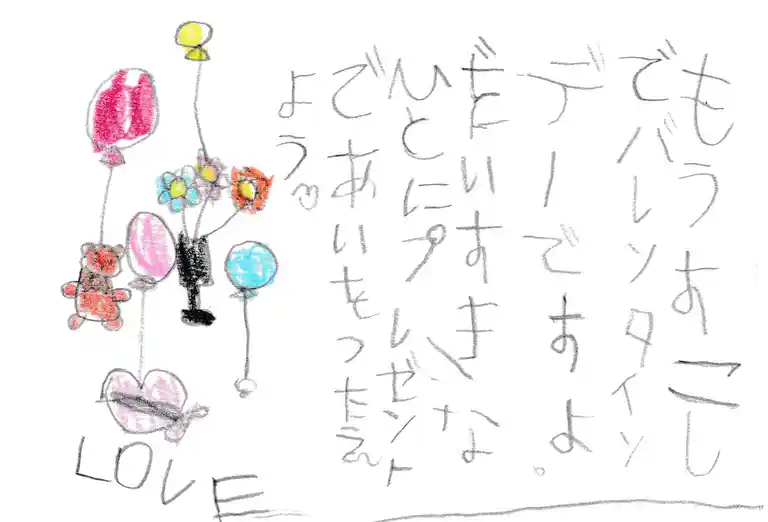 もうすこし
でバレンタイン
デーですよ。
だいすきな
ひとにプレゼント
であいをつたえ
よう。♡
LOVE